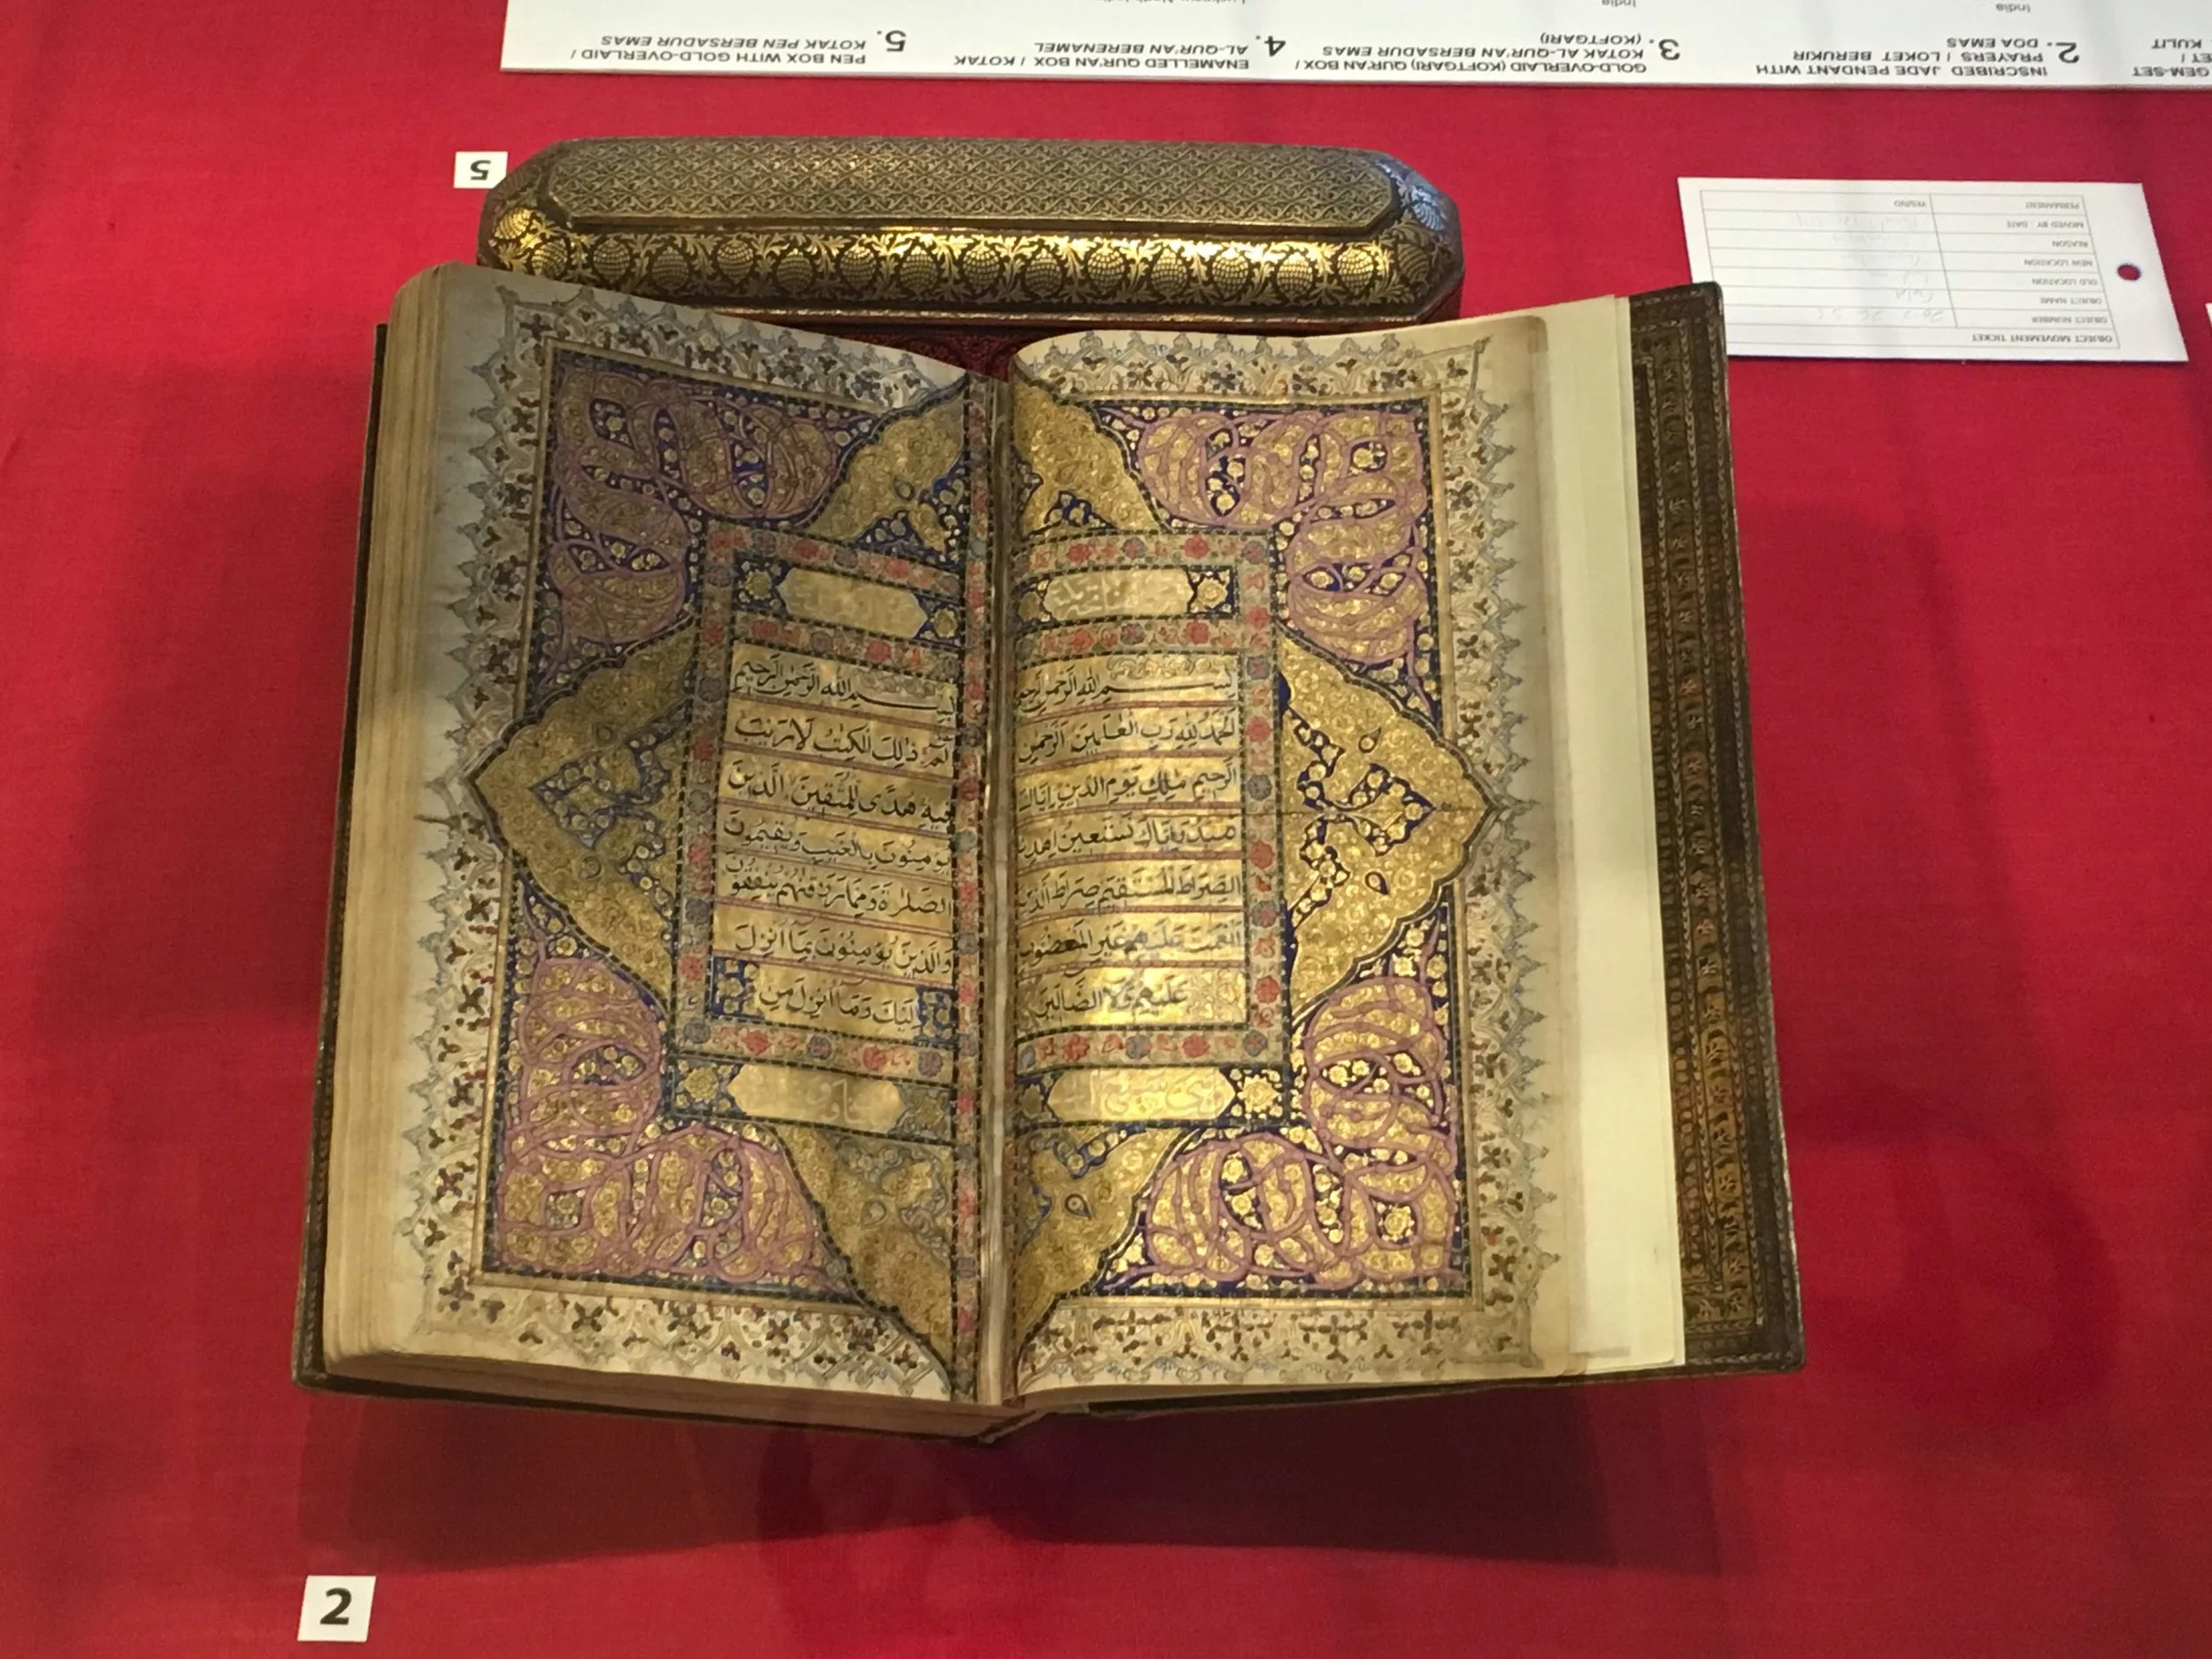 INSCRIBED JADE PENDANT WITH
2. PRAYERS / LOKET BERUKIR
DOA EMAS
India
GOLD-OVERLAID (KOFTGARI) QUR'AN BOX /
3. KOTAK AL-QUR'AN BERSADUR EMAS
(KOFTGARI)
India
4. ENAMELLED QUR'AN BOX / KOTAK
AL-QUR'AN BERENAMEL
5. PEN BOX WITH GOLD-OVERLAID /
KOTAK PEN BERSADUR EMAS
GEM-SET
KULIT
5
OBJECT MOVEMENT TICKET
OBJECT NUMBER
OBJECT NAME
OLD LOCATION
NEW LOCATION
REASON
MOVED BY / DATE
PERMANENT YES/NO
بسم الله الرحمن الرحيم
الحمد لله رب العلمين الرحمن
الرحيم ملك يوم الدين اياك
نعبد واياك نستعين اهدنا
الصراط المستقيم صراط الذين
انعمت عليهم غير المغضوب
عليهم ولا الضالين
بسم الله الرحمن الرحيم
الم ذلك الكتب لا ريب
فيه هدى للمتقين الذين
يؤمنون بالغيب ويقيمون
الصلوة ومما رزقنهم ينفقون
والذين يؤمنون بما انزل
اليك وما انزل من
2